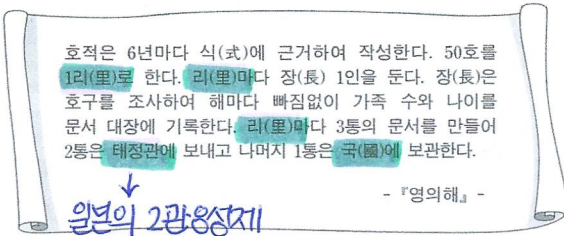 호적은 6년마다 식(式)에 근거하여 작성한다. 50호를
1리(里)로 한다. 리(里)마다 장(長) 1인을 둔다. 장(長)은
호구를 조사하여 해마다 빠짐없이 가족 수와 나이를
문서 대장에 기록한다. 리(里)마다 3통의 문서를 만들어
2통은 태정관에 보내고 나머지 1통은 국(國)에 보관한다.
- 『영의해』 -
일본의 2관8성제